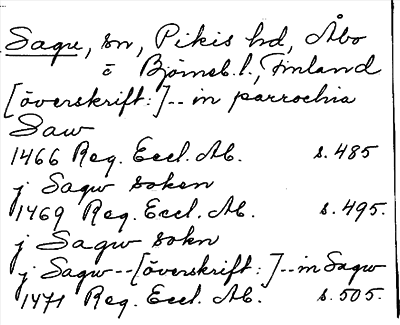 Sagu, sn, Pikis hd, Åbo
o Björneb. l., Finland
[överskrift:]-- in parrochia
Saw
1466 Reg. Eccl. Ab. s. 485
j Sagw soken
1469 Reg. Eccl. Ab. s. 495.
j Sagw sokn
j Sagw--[överskrift:]--in Sagw
1471 Reg. Eccl. Ab. s. 505.